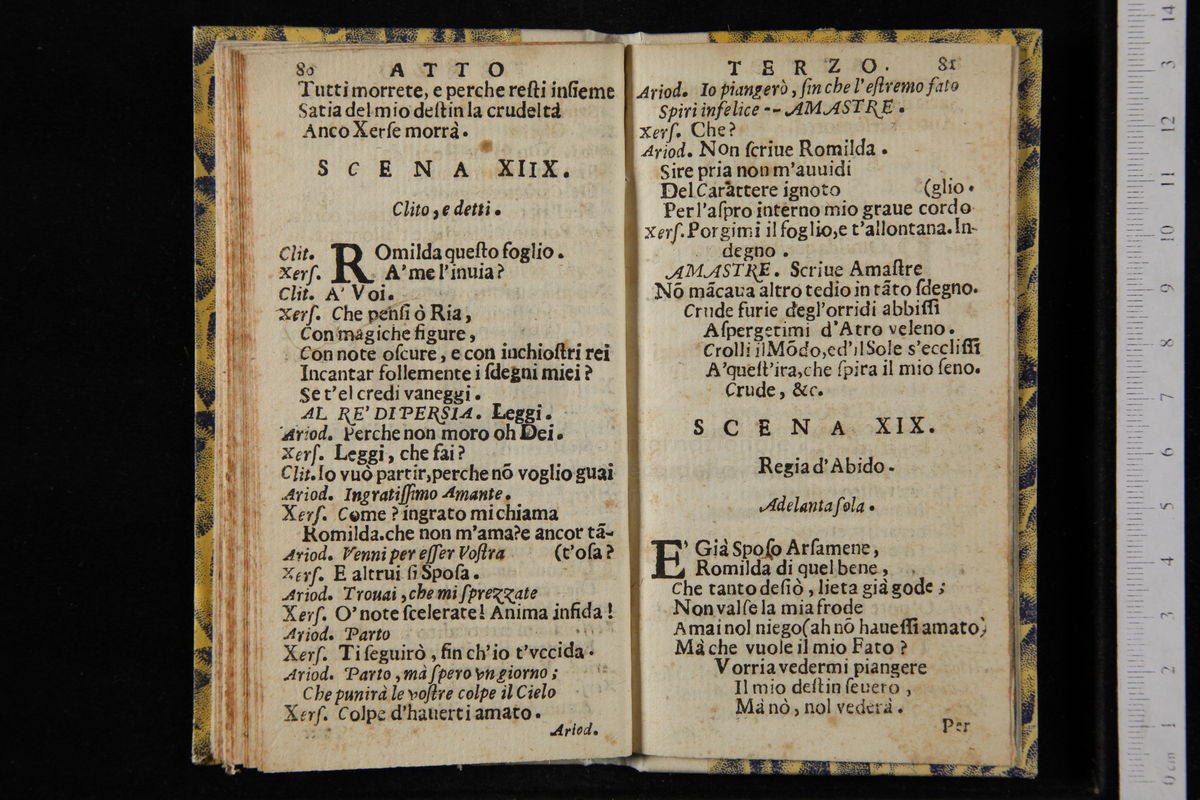 80 ATTO
Tutti morrete, e perche reſti inſieme
Satia del mio deſtin la crudeltà
Anco Xerſe morrà.
SCENA XIIX.
Clito, e detti.
Clit. ROmilda queſto foglio.
Xerſ. A' me l'inuia?
Clit. A' Voi.
Xerſ. Che penſi ò Ria,
Con magiche figure,
Con note oſcure, e con inchioſtri rei
Incantar follemente i ſdegni miei?
Se t'el credi vaneggi.
AL RE' DI PERSIA. Leggi.
Ariod. Perche non moro oh Dei.
Xerſ. Leggi, che fai?
Clit. Io vuò partir, perche nõ voglio guai
Ariod. Ingratiſſimo Amante.
Xerſ. Come? ingrato mi chiama
Romilda. che non m'ama? e ancor tã-
Ariod. Venni per eſſer Voſtra (t'oſa?
Xerſ. E altrui ſi Spoſa.
Ariod. Trouai, che mi ſprezzate
Xerſ. O' note ſcelerate! Anima infida!
Ariod. Parto
Xerſ. Ti ſeguirò, fin ch'io t'vccida.
Ariod. Parto, mà ſpero vn giorno;
Che punirà le voſtre colpe il Cielo
Xerſ. Colpe d'hauerti amato.
Ariod.
TERZO. 81
Ariod. Io piangerò, fin che l'eſtremo fato
Spiri infelice -- AMASTRE.
Xerſ. Che?
Ariod. Non ſcriue Romilda.
Sire pria non m'auuidi
Del Carattere ignoto (glio.
Per l'aſpro interno mio graue cordo
Xerſ. Porgimi il foglio, e t'allontana. In-
degno.
AMASTRE. Scriue Amaſtre
Nõ mãcaua altro tedio in tãto ſdegno.
Crude furie degl'orridi abbiſſi
Aſpergetimi d'Atro veleno.
Crolli il Mõdo, ed'il Sole s'eccliſſi
A' queſt'ira, che ſpira il mio ſeno.
Crude, &c.
SCENA XIX.
Regia d'Abido.
Adelanta ſola.
E' Già Spoſo Arſamene,
Romilda di quel bene,
Che tanto deſiò, lieta già gode;
Non valſe la mia frode
Amai nol niego (ah nõ haueſſi amato)
Mà che vuole il mio Fato?
Vorria vedermi piangere
Il mio deſtin ſeuero,
Mà nò, nol vederà.
Per
0 cm 1 2 3 4 5 6 7 8 9 10 11 12 3 14